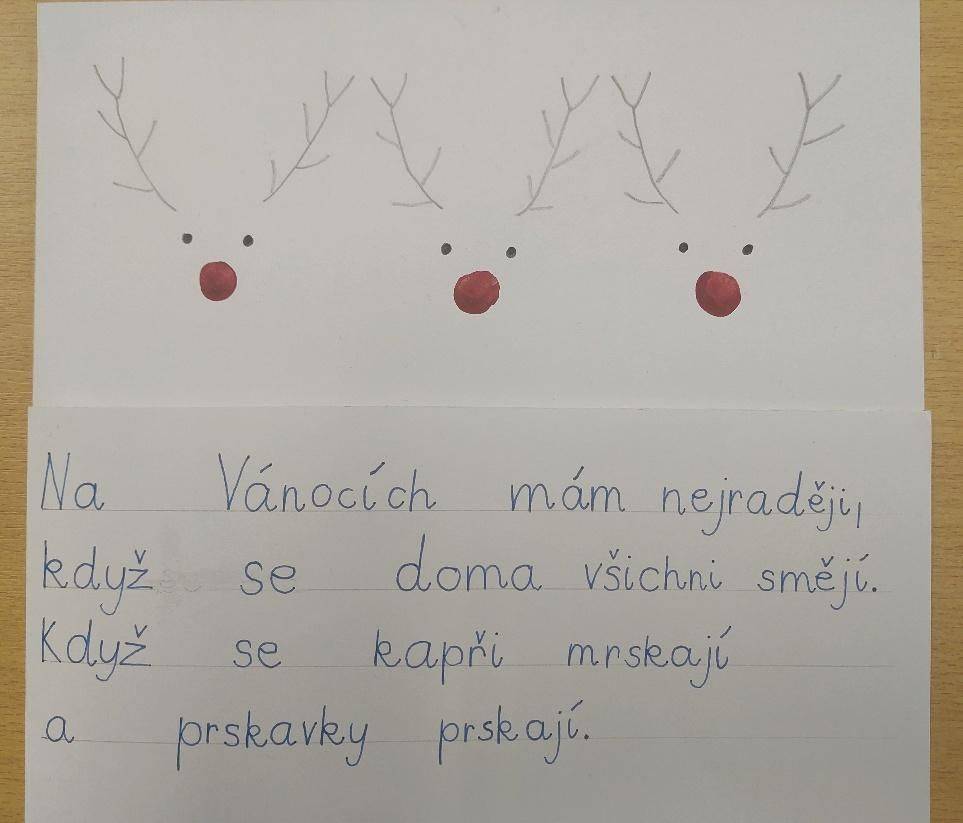 Na Vánocích mám nejraději,
když se doma všichni smějí.
Když se kapři mrskají
a prskavky prskají.